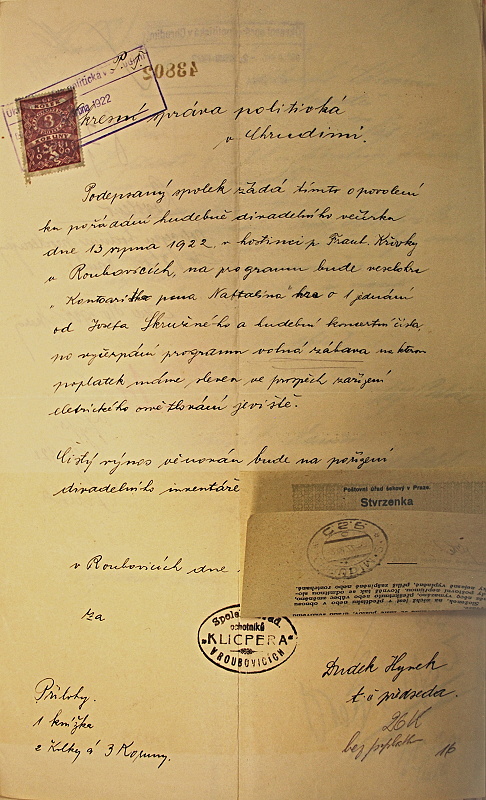 P. T.
43802
1922
3
KORUNY
Okresní správa politická
v Chrudimi.
Podepsaný spolek žádá tímto o povolení
ku pořádání hudebně divadelního večírku
dne 13 srpna 1922, v hostinci p. Frant. Křivky
v Roubovicích, na programu bude veselohra
pana Nattalina" o 1 jednání
od Josefa Skružného a hudební koncertní čísla,
po vyčerpání programu volná zábava na kterou
poplatek máme, sleven ve prospěch zařízení
eletrického osvětlování jeviště.
Čistý výnos věnován bude na pořízení
divadelního inventáře
Poštovní úřad šekový v Praze.
Stvrzenka
v Roubovicích dne
za
ochotníků
"KLICPERA"
V ROUBOVICÍCH
Dudek Hynek
t. č. předseda.
Přílohy.
1 knížka
2 Kolky á 3 Koruny.
26 K
bez poplatku
16